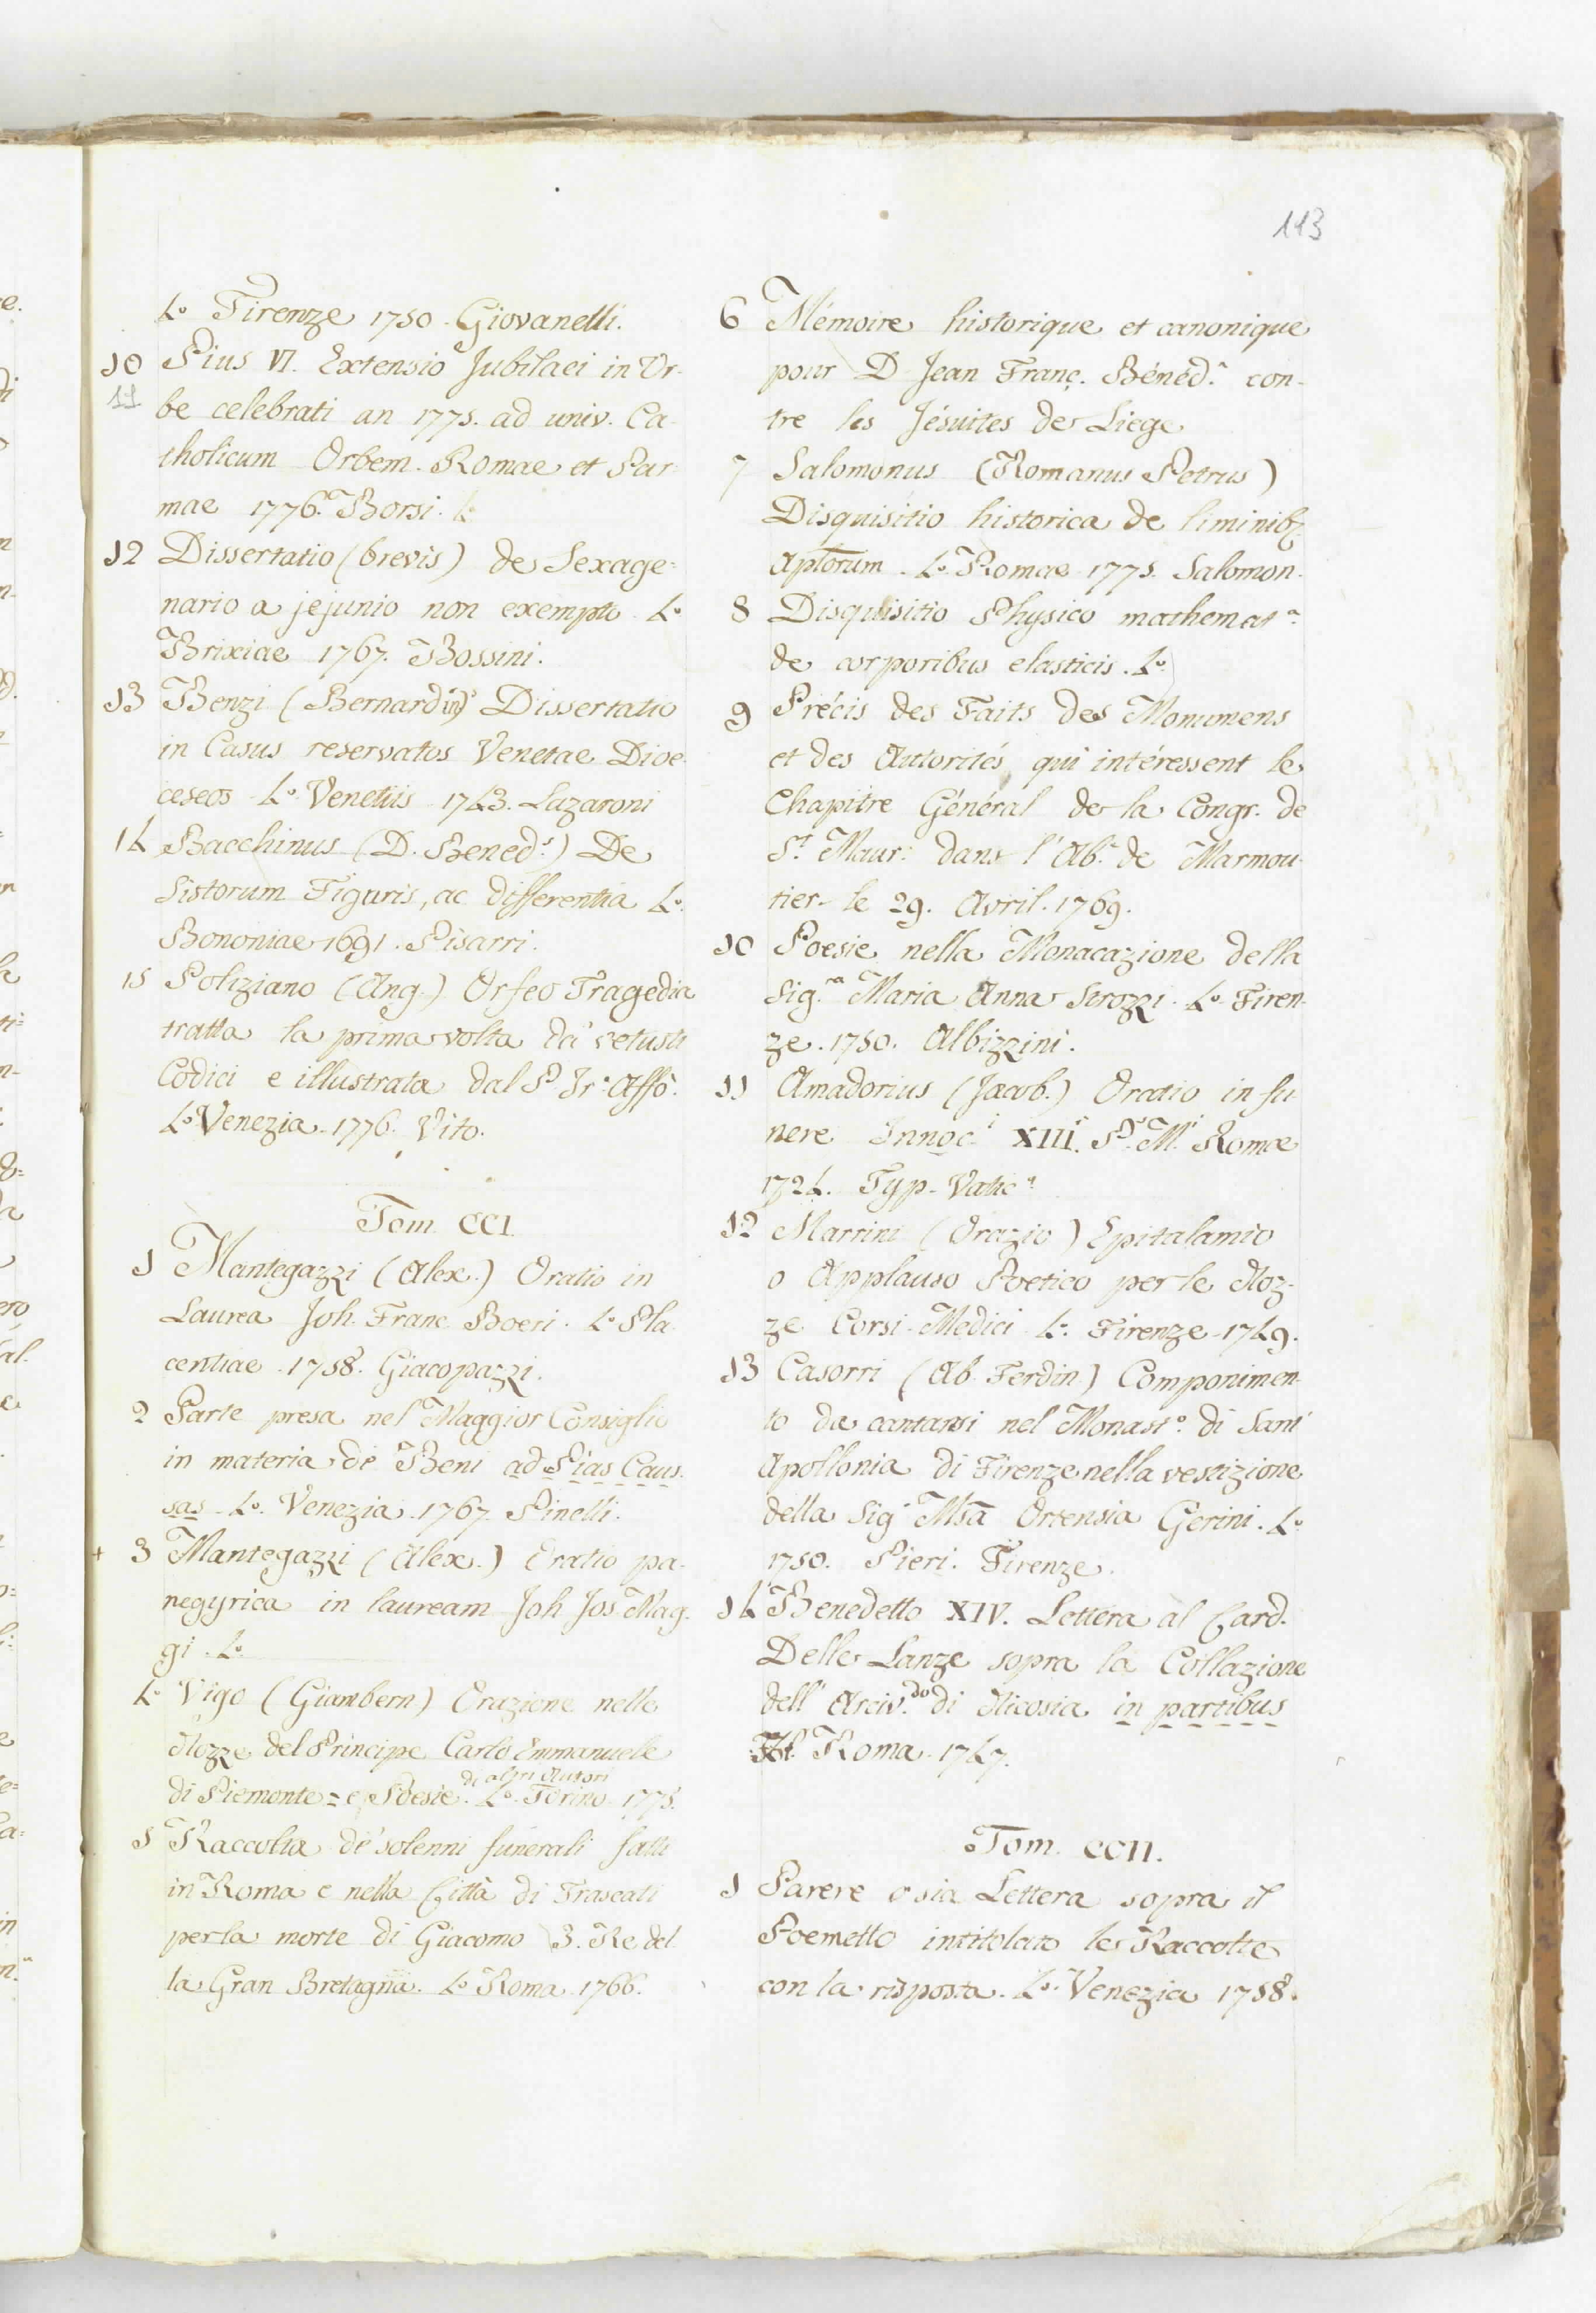 113
4.o Firenze 1750. Giovanelli.
10 Pius VI. Extensio Jubilaei in Ur-
11 be celebrati an 1775. ad univ. Ca-
tholicum Orbem. Romae et Par-
mae 1776. Borsi. 4.
12 Dissertatio (brevis) de Sexage=
nario a jejunio non exempto 4.o
Brixiae 1767. Bossini.
13 Benzi (Bernardin) Dissertatio
in Casus reservatos Venetae Dioe-
ceseos 4.o Venetiis 1743. Lazaroni
14 Bacchinus (D. Bened.s) De
Sistorum Figuris, ac differentia 4.o
Bononiae 1691. Pisarri.
15 Poliziano (Ang.) Orfeo Tragedia
tratta la prima volta da' vetusti
Codici e illustrata dal P. Ir. Affò.
4.o Venezia 1776. Vito.
Tom. CCI.
1 Mantegazzi (Alex.) Oratio in
Laurea Joh. Franc Boeri. 4.o Pla-
centiae 1758. Giacopazzi.
2 Parte presa nel Maggior Consiglio
in materia de' Beni ad Pias Caus-
sas 4.o Venezia 1767 Pinelli.
+ 3 Mantegazzi (Alex.) Oratio pa-
negyrica in lauream Joh Jos Mag-
gi. 4.o
4 Vigo (Giambern) Orazione nelle
Nozze del Principe Carlo Emmanuelle
di altri Autori
di Piemonte = e Poesie. 4.o Torino 1775.
5 Raccolta de' solenni funerali fatti
in Roma e nella Città di Frascati
per la morte di Giacomo 3. Re del-
la Gran Bretagna. 4.o Roma 1766.
6 Mémoire historique et canonique
pour D Jean Franç. Bénéd.n con-
tre les Jésuites de Liege
7 Salomonus (Romanus Petrus)
Disquisitio historica de liminibz
Aptorum. 4.o Romae 1775. Salomon.
8 Disquisitio Physico mathemat.a
de corporibus elasticis. 4.o
9 Précis des Faits des Monumens
et des Autorités qui intéressent le
Chapitre Général de la Congr. de
St. Maur: dans l'Ab.e de Marmou-
tier le 29. Avril. 1769.
10 Poesie nella Monacazione della
Sig.ra Maria Anna Strozzi. 4.o Firen-
ze. 1750. Albizzini.
11 Amadorius (Jacob.) Oratio in fu-
nere Innoc.i XIII. P. M. Romae
1724. Typ. Vatic.
12 Marrini (Orazio) Epitalamio
o Applauso Poetico per le Noz-
ze Corsi-Medici 4.o Firenze 1749.
13 Casorri (Ab. Ferdin.) Componimen-
to da cantarsi nel Monast.o di Sant'
Apollonia di Firenze nella vestizione
della Sig.a Msa Ortensia Gerini. 4.o
1750. Pieri. Firenze.
14 Benedetto XIV. Lettera al Card.
Delle Lanze sopra la Collazione
dell'Arciv.do di Nicosia in partibus
Roma 1747.
Tom. CCII.
1 Parere o sia Lettera sopra il
Poemetto intitolato le Raccolte
con la risposta. 4.o Venezia 1758.